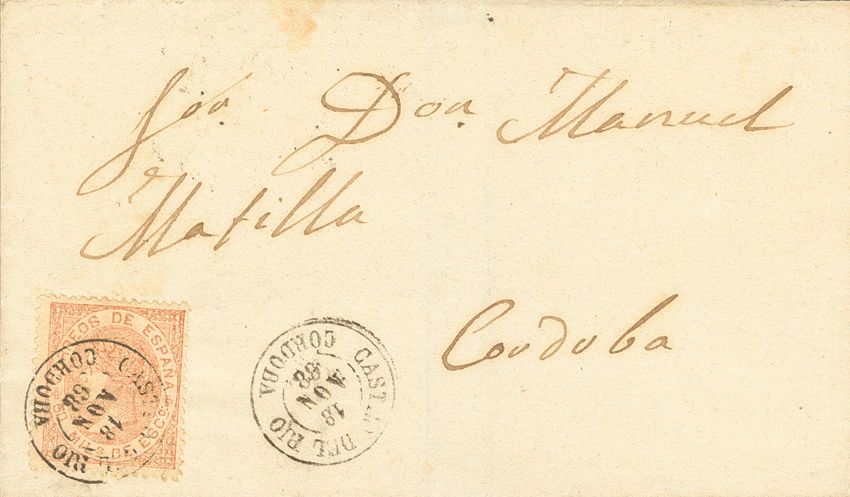 Sor. Don. Manuel
Matilla
Cordoba
CORREOS DE ESPAÑA
MILS DE ESCO
CAST RIO
18
NOV
68
CORDOBA
CAST DEL RIO
18
NOV
68
CORDOBA